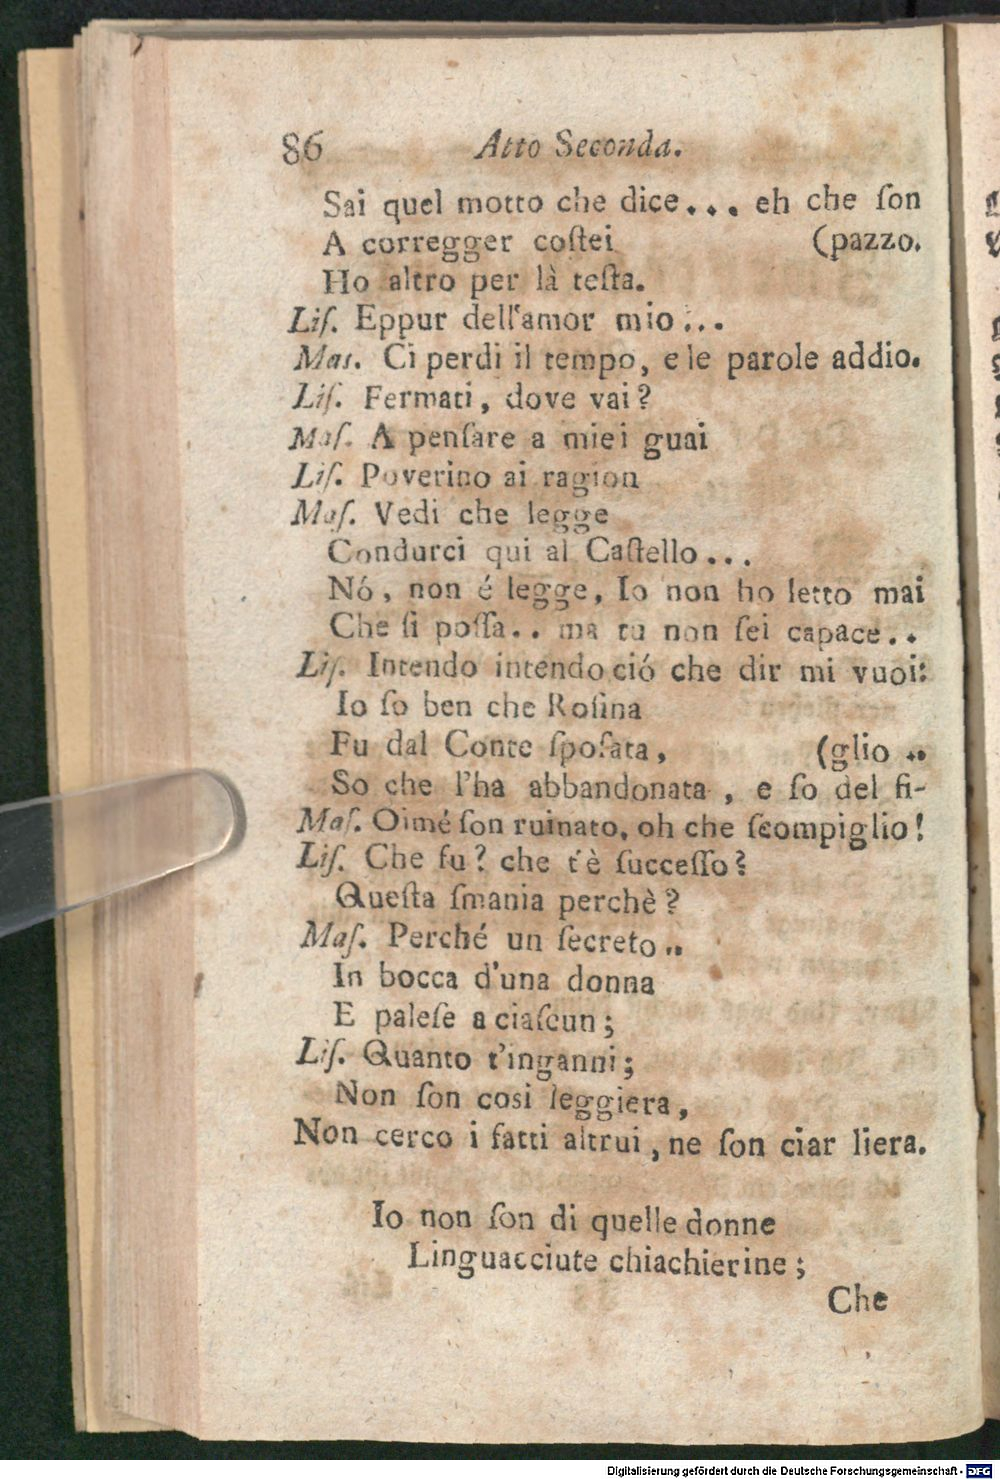 86 Atto Seconda.
Sai quel motto che dice... eh che ſon
A corregger coſtei (pazzo.
Ho altro per là teſta.
Liſ. Eppur dell'amor mio...
Mas. Ci perdi il tempo, e le parole addio.
Liſ. Fermati, dove vai?
Maſ. A penſare a miei guai
Liſ. Poverino ai ragion
Maſ. Vedi che legge
Condurci qui al Caſtello...
Nó, non é legge, Io non ho letto mai
Che ſi poſſa.. ma tu non ſei capace..
Liſ. Intendo intendo ció che dir mi vuoi:
Io ſo ben che Roſina
Fu dal Conte ſpoſata, (glio ..
So che l'ha abbandonata, e ſo del fi-
Maſ. Oimé ſon ruinato, oh che ſcompiglio!
Liſ. Che fu? che t'è ſucceſſo?
Queſta ſmania perchè?
Maſ. Perché un ſecreto..
In bocca d'una donna
E paleſe a ciaſcun;
Liſ. Quanto t'inganni;
Non ſon cosi leggiera,
Non cerco i fatti altrui, ne ſon ciar liera.
Io non ſon di quelle donne
Linguacciute chiachierine;
Che
Digitalisierung gefördert durch die Deutsche Forschungsgemeinschaft - DFG